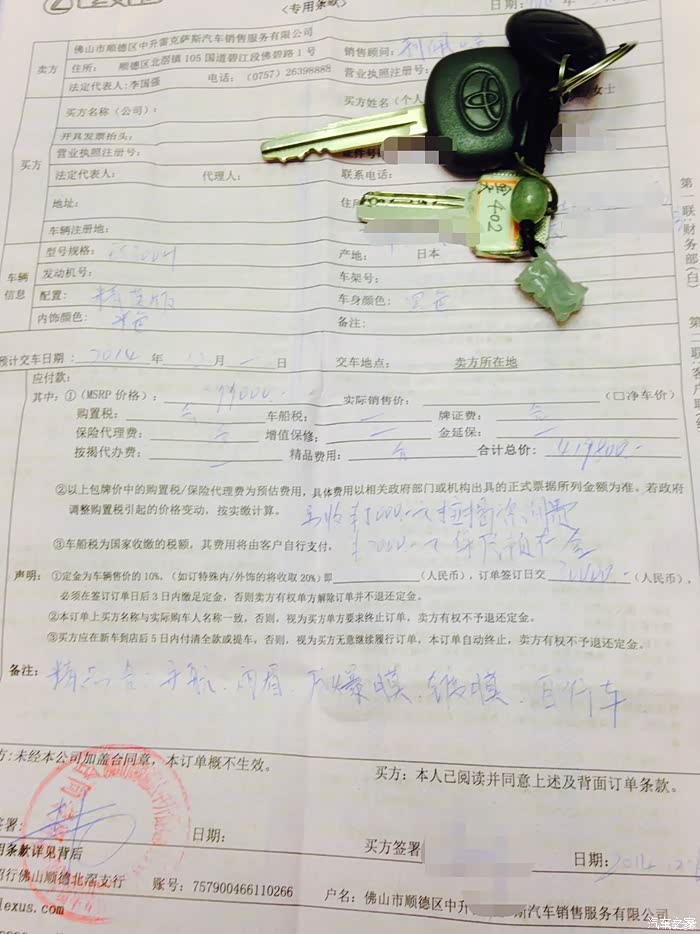 〈专用条款〉
日期:
卖方
佛山市顺德区中升雷克萨斯汽车销售服务有限公司
销售顾问:
住所: 顺德区北滘镇105国道碧江段佛碧路1号
营业执照注册号:
法定代表人:李国强 电话: (0757) 26398888
女士
买方
买方名称(公司):
买方姓名(个人
开具发票抬头:
营业执照注册号:
证件号
法定代表人: 代理人:
联系电话:
402
地址:
住所
车辆注册地:
第一联:财务部(白)
第二联:客户联
车辆信息
型号规格:
产地: 日本
发动机号:
车架号:
配置: 精英版
车身颜色: 黑色
内饰颜色: 米色
备注:
预计交车日期: 2014 年 12 月 一 日 交车地点: 卖方所在地
应付款:
其中:①(MSRP 价格): 实际销售价: (□净车价)
购置税: 含 车船税: 一 牌证费: 含
保险代理费: 含 增值保修: 一 金延保: 一
按揭代办费: 一 精品费用: 含 合计总价: 419800.-
②以上包牌价中的购置税/保险代理费为预估费用,具体费用以相关政府部门或机构出具的正式票据所列金额为准。若政府
调整购置税引起的价格变动,按实缴计算。
③车船税为国家收缴的税额,其费用将由客户自行支付,
声明:
①定金为车辆售价的10%,(如订特殊内/外饰的将收取20%)即 (人民币),订单签订日交 20000.- (人民币),
必须在签订订单日后3日内缴足定金,否则卖方有权单方解除订单并不退还定金。
②本订单上买方名称与实际购车人名称一致,否则,视为买方单方要求终止订单,卖方有权不予退还定金。
③买方应在新车到店后5日内付清全款或提车,否则,视为买方无意继续履行订单,本订单自动终止,卖方有权不予退还定金。
备注: 精品含:导航、雨眉、防爆膜、镀膜、自行车
方:未经本公司加盖合同章,本订单概不生效。
买方:本人已阅读并同意上述及背面订单条款。
签署:
日期:
买方签署
日期: 2014
用条款详见背后
招行佛山顺德北滘支行 账号: 757900466110266 户名: 佛山市顺德区中升 斯汽车销售服务有限公司
lexus.com
汽车之家